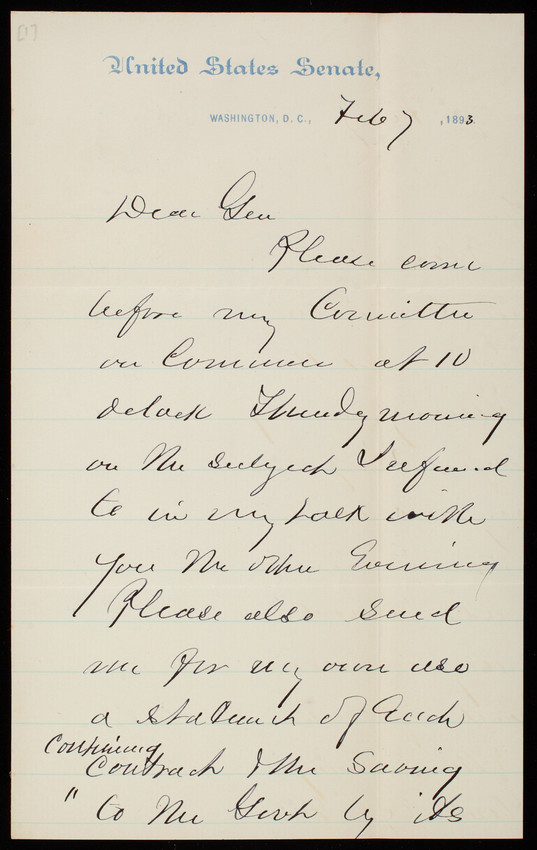 United States Senate,
WASHINGTON, D. C., Feb 7, 1893
Dear Gen
Please come
before my Committee
on Commerce at 10
oclock Thursday morning
on the subject I referred
to in my talk with
you the other Evening
Please also send
me for my own use
a statement of Each
Contract & the Saving
" to the Govt by its